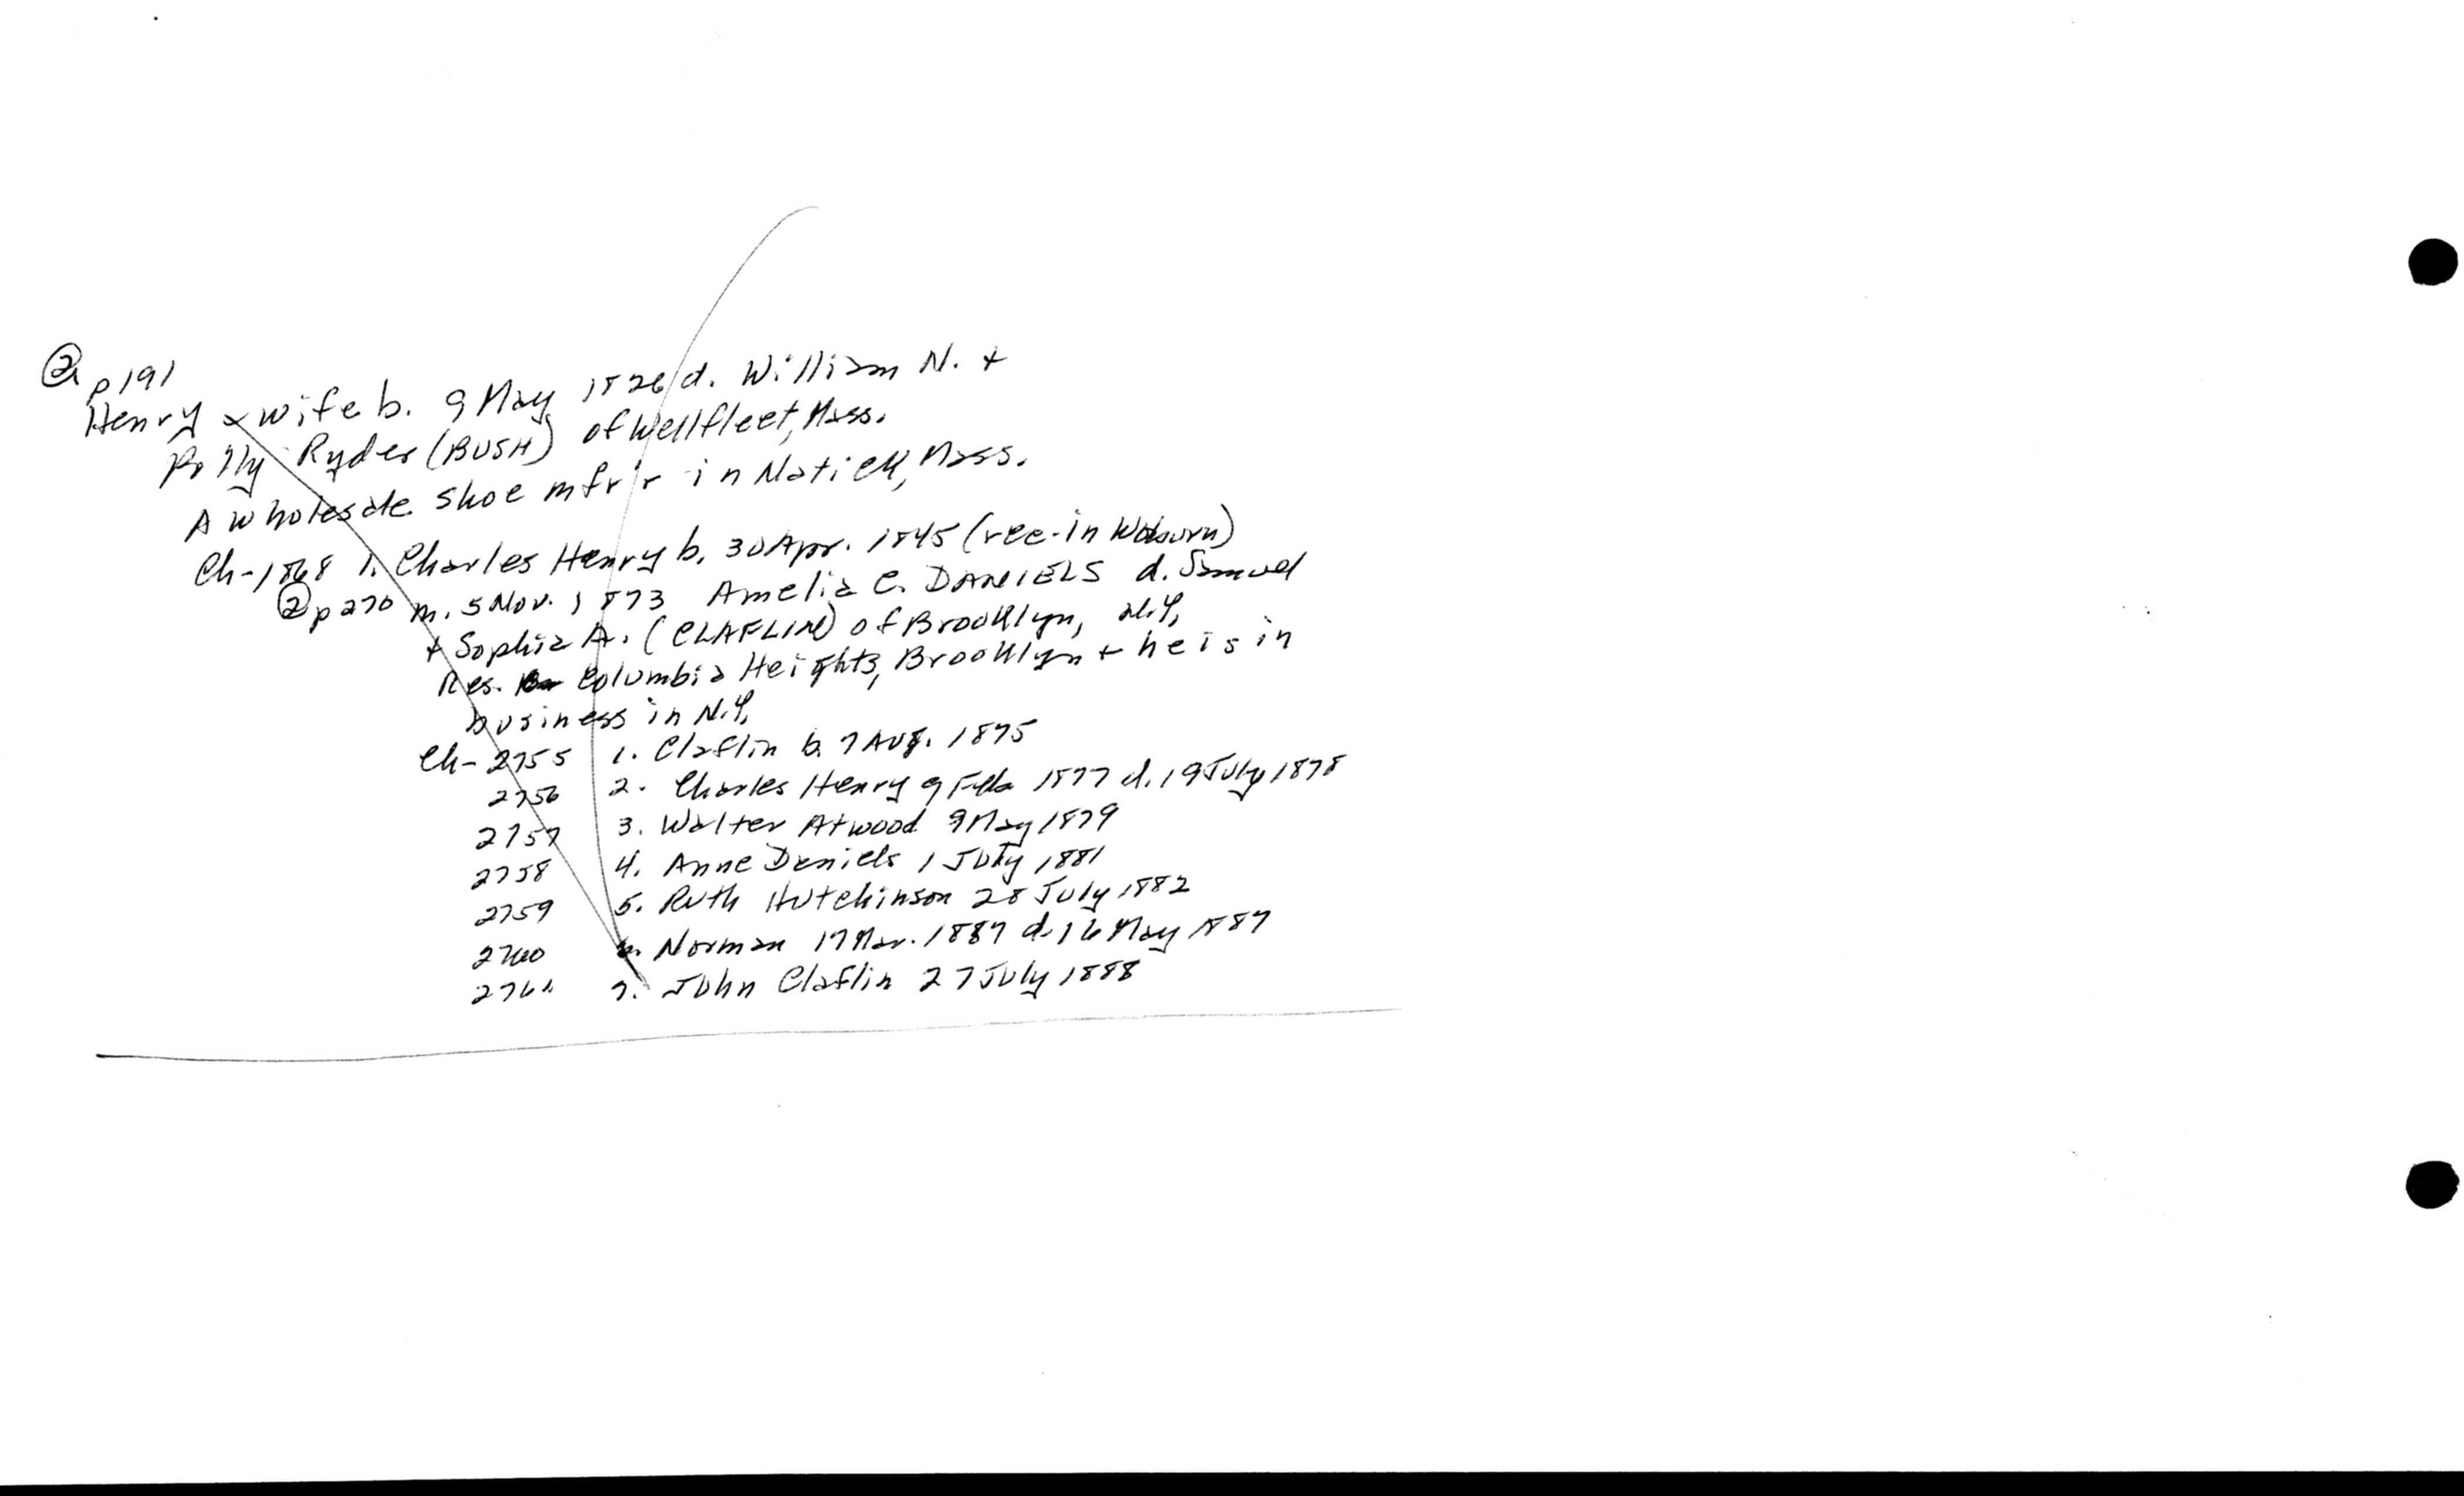 ② p191
Henry x wife b. 9 May 1826 d. William N. +
Polly Ryder (BUSH) of Wellfleet, Mass.
A wholesale shoe mfr'r in Natick, Mass.
Ch-1868 1. Charles Henry b. 30 Apr. 1845 (rec. in Woburn)
② p270 m. 5 Nov. 1873 Amelia C. DANIELS d. Samuel
+ Sophia A. (CLAFLIN) of Brooklyn, N.Y.
Res. Columbia Heights, Brooklyn + he is in
business in N.Y.
Ch- 2755 1. Claflin b. 7 Aug. 1875
2756 2. Charles Henry 9 Feb 1877 d. 19 July 1878
2757 3. Walter Atwood 9 May 1879
2758 4. Anne Daniels 1 July 1881
2759 5. Ruth Hutchinson 28 July 1882
2760 6. Norman 17 Mar. 1887 d. 16 May 1887
2761 7. John Claflin 27 July 1888